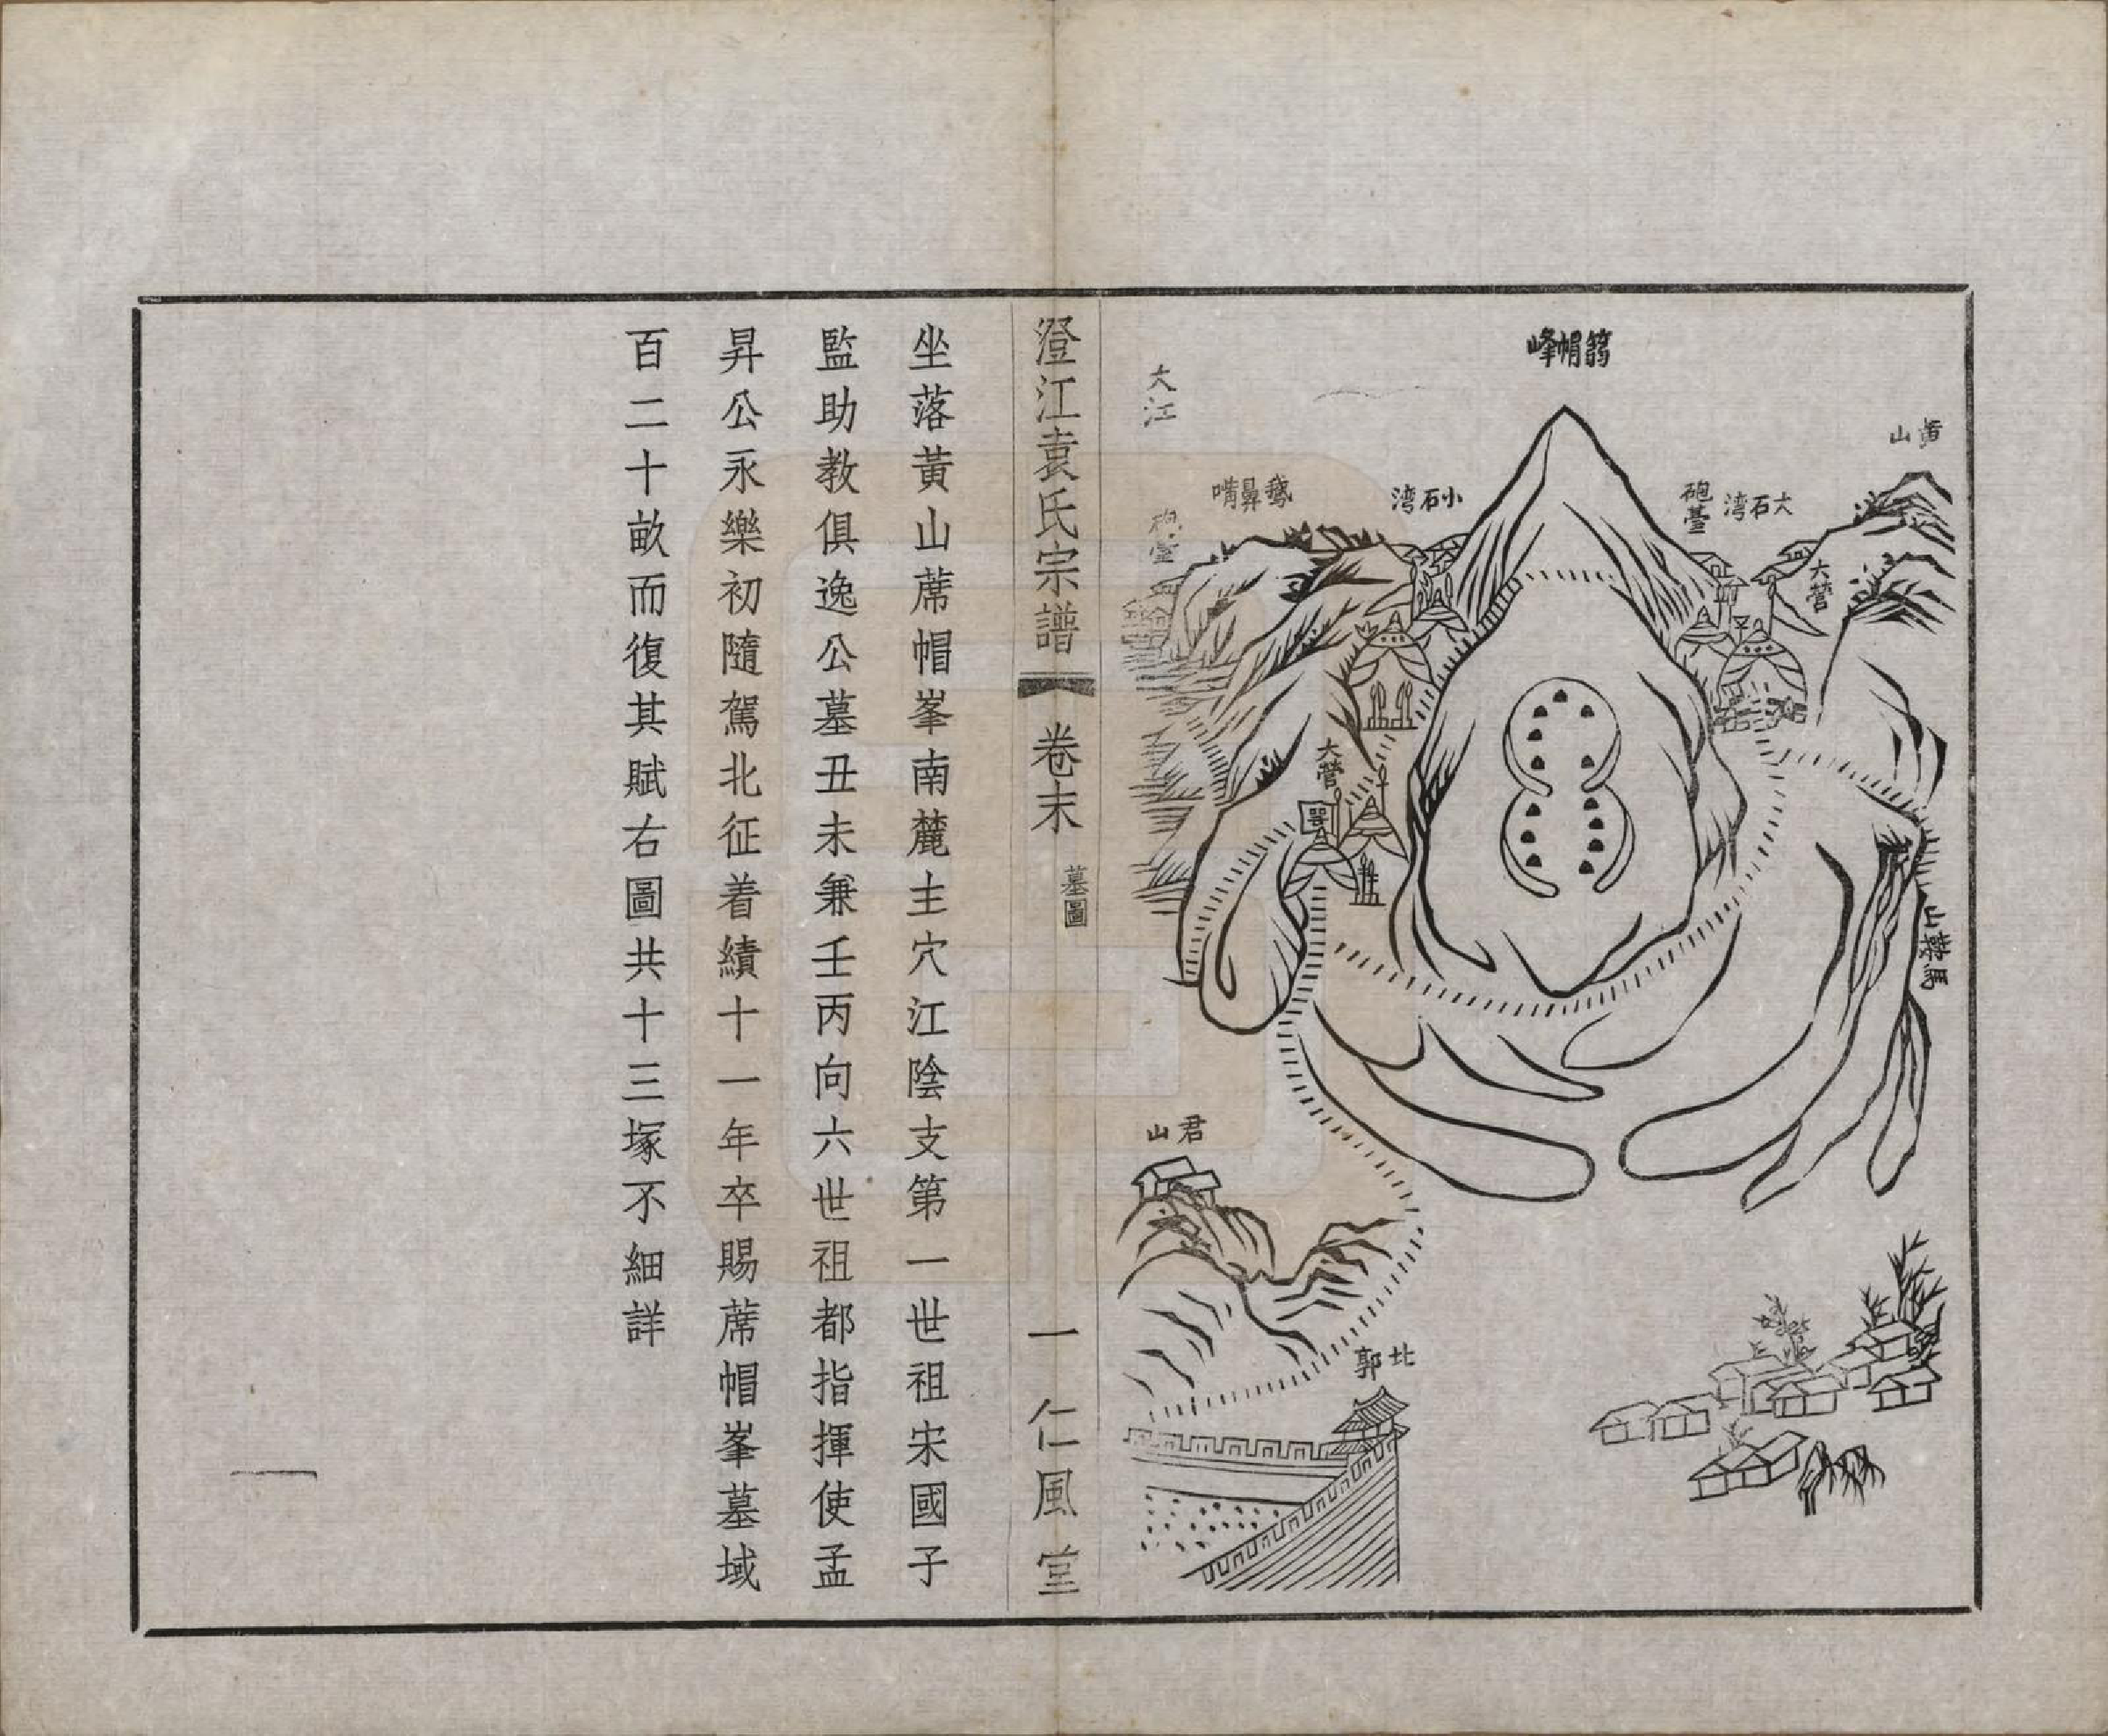 黃山
大石湾
砲臺
大營
馬鞍山
帽峰
小石湾
鵝鼻嘴
砲臺
大江
大營
君山
北郭
澄江袁氏宗譜
卷末
墓圖
一
仁風堂
坐落黃山蓆帽峯南麓主穴江陰支第一世祖宋國子
監助教俱逸公墓丑未兼壬丙向六世祖都指揮使孟
昇公永樂初隨駕北征着績十一年卒賜蓆帽峯墓域
百二十畝而復其賦右圖共十三塚不細詳